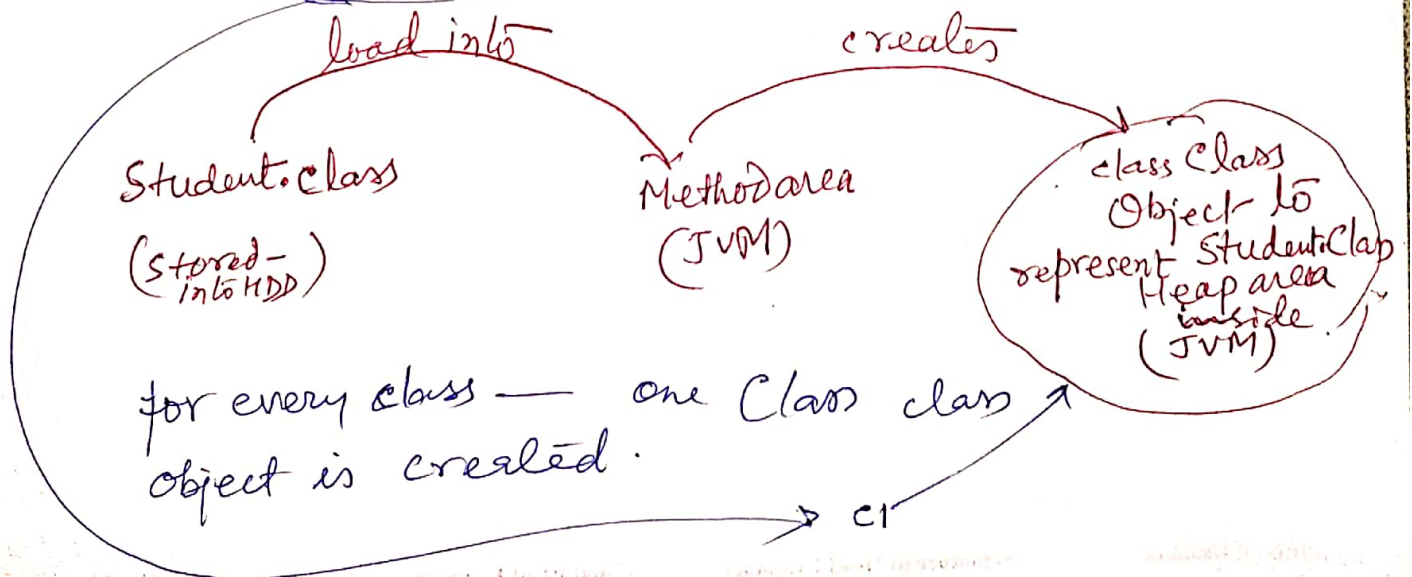 load into
creates
Student.class
(stored-
into HDD)
Method area
(JVM)
class Class
Object to
represent Student.Class
Heap area
inside
(JVM)
for every class — one Class class
object is created.
c1